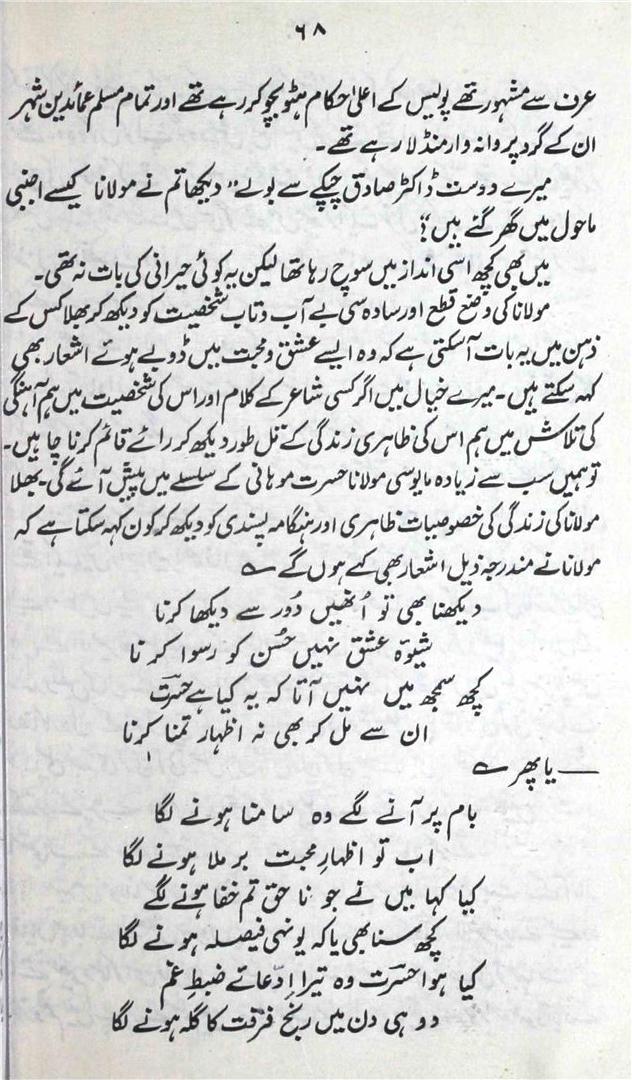 ۶۸
عرف سے مشہور تھے پولیس کے اعلیٰ حکام ہٹو بچو کر رہے تھے اور تمام مسلم عمائدین شہر
ان کے گرد پروانہ وار منڈلا رہے تھے۔
میرے دوست ڈاکٹر صادق چپکے سے بولے "دیکھا تم نے مولانا کیسے اجنبی
ماحول میں گھر گئے ہیں"؟
میں بھی کچھ اسی انداز میں سوچ رہا تھا لیکن یہ کوئی حیرانی کی بات نہ تھی۔
مولانا کی وضع قطع اور سادہ سی بے آب و تاب شخصیت کو دیکھ کر بھلا کس کے
ذہن میں یہ بات آ سکتی ہے کہ وہ ایسے عشق و محبت میں ڈوبے ہوئے اشعار بھی
کہہ سکتے ہیں۔ میرے خیال میں اگر کسی شاعر کے کلام اور اس کی شخصیت میں ہم آہنگی
کی تلاش میں ہم اس کی ظاہری زندگی کے تل طور دیکھ کر رائے قائم کرنا چاہیں۔
تو ہمیں سب سے زیادہ مایوسی مولانا حسرت موہانی کے سلسلے میں پیش آئے گی۔ بھلا
مولانا کی زندگی کی خصوصیات ظاہری اور ہنگامہ پسندی کو دیکھ کر کون کہہ سکتا ہے کہ
مولانا نے مندرجہ ذیل اشعار بھی کہے ہوں گے ؎
دیکھنا بھی تو اُنھیں دُور سے دیکھا کرنا
شیوۂ عشق نہیں حُسن کو رسوا کرنا
کچھ سمجھ میں نہیں آتا کہ یہ کیا ہے حسرتؔ
ان سے مل کر بھی نہ اظہار تمنا کرنا
— یا پھر ؎
بام پر آنے لگے وہ سامنا ہونے لگا
اب تو اظہارِ محبت برملا ہونے لگا
کیا کہا میں نے جو ناحق تم خفا ہونے لگے
کچھ سنا بھی یا کہ یونہی فیصلہ ہونے لگا
کیا ہوا حسرتؔ وہ تیرا اِدّعائے ضبطِ غم
دو ہی دن میں رنج فرقت کا گلہ ہونے لگا